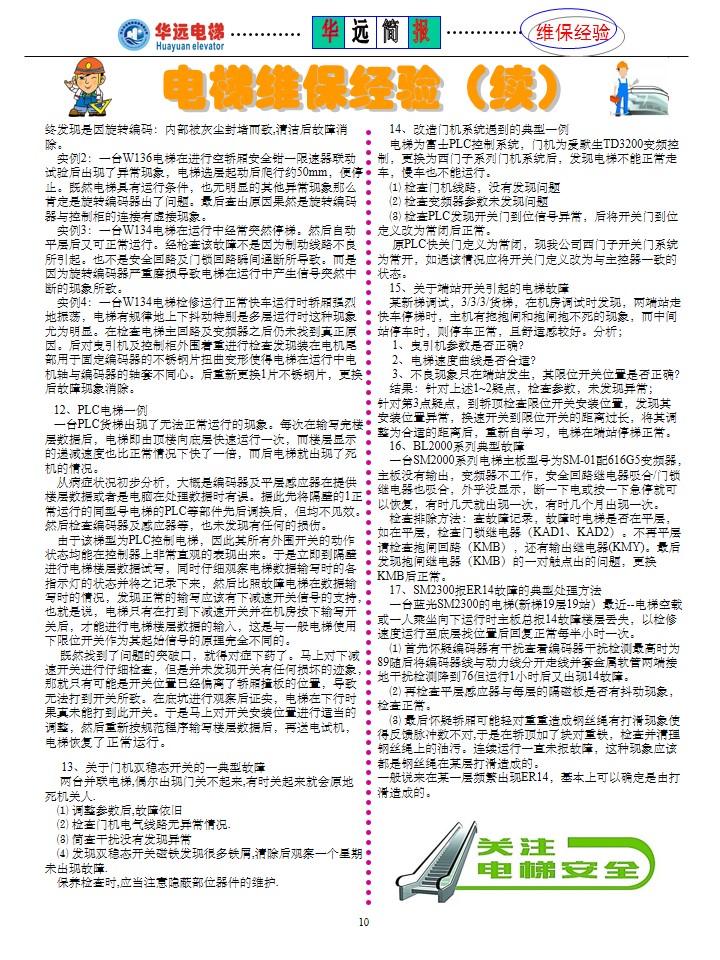 华远电梯
Huayuan elevator
华远简报
维保经验
电梯维保经验（续）
终发现是因旋转编码：内部被灰尘封堵而致,清洁后故障消
除。
实例2：一台W136电梯在进行空轿厢安全钳一限速器联动
试验后出现了异常现象，电梯选层起动后爬行约50mm，便停
止。既然电梯具有运行条件，也无明显的其他异常现象那么
肯定是旋转编码器出了问题。最后查出原因果然是旋转编码
器与控制柜的连接有虚接现象。
实例3：一台W134电梯在运行中经常突然停梯。然后自动
平层后又可正常运行。经检查该故障不是因为制动线路不良
所引起。也不是安全回路及门锁回路瞬间通断所导致。而是
因为旋转编码器严重磨损导致电梯在运行中产生信号突然中
断的现象所致。
实例4：一台W134电梯检修运行正常快车运行时轿厢强烈
地振荡，电梯有规律地上下抖动特别是多层运行时这种现象
尤为明显。在检查电梯主回路及变频器之后仍未找到真正原
因。后对曳引机及控制柜外围着重进行检查发现装在电机尾
部用于固定编码器的不锈钢片扭曲变形使得电梯在运行中电
机轴与编码器的轴套不同心。后重新更换1片不锈钢片，更换
后故障现象消除。
12、PLC电梯一例
一台PLC货梯出现了无法正常运行的现象。每次在输写完楼
层数据后，电梯即由顶楼向底层快速运行一次，而楼层显示
的递减速度也比正常情况下快了一倍，而后电梯就出现了死
机的情况。
从病症状况初步分析，大概是编码器及平层感应器在提供
楼层数据或者是电脑在处理数据时有误。据此先将隔壁的1正
常运行的同型号电梯的PLC等部件先后调换后，但均不见效。
然后检查编码器及感应器等，也未发现有任何的损伤。
由于该梯型为PLC控制电梯，因此其所有外围开关的动作
状态均能在控制器上非常直观的表现出来。于是立即到隔壁
进行电梯楼层数据试写，同时仔细观察电梯数据输写时的各
指示灯的状态并将之记录下来，然后比照故障电梯在数据输
写时的情况，发现正常的输写应该有下减速开关信号的支持，
也就是说，电梯只有在打到下减速开关并在机房按下输写开
关后，才能进行电梯楼层数据的输入，这是与一般电梯使用
下限位开关作为其起始信号的原理完全不同的。
既然找到了问题的突破口，就得对症下药了。马上对下减
速开关进行仔细检查，但是并未发现开关有任何损坏的迹象，
那就只有可能是开关位置已经偏离了轿厢撞板的位置，导致
无法打到开关所致。在底坑进行观察后证实，电梯在下行时
果真未能打到此开关。于是马上对开关安装位置进行适当的
调整，然后重新按规范程序输写楼层数据后，再送电试机，
电梯恢复了正常运行。
13、关于门机双稳态开关的一典型故障
两台并联电梯,偶尔出现门关不起来,有时关起来就会原地
死机关人.
⑴ 调整参数后,故障依旧
⑵ 检查门机电气线路无异常情况.
⑶ 简查干扰没有发现异常
⑷ 发现双稳态开关磁铁发现很多铁屑,清除后观察一个星期
未出现故障.
保养检查时,应当注意隐蔽部位器件的维护.
14、改造门机系统遇到的典型一例
电梯为富士PLC控制系统，门机为爱默生TD3200变频控
制，更换为西门子系列门机系统后，发现电梯不能正常走
车，慢车也不能运行。
⑴ 检查门机线路，没有发现问题
⑵ 检查变频器参数未发现问题
⑶ 检查PLC发现开关门到位信号异常，后将开关门到位
定义改为常闭后正常。
原PLC快关门定义为常闭，现我公司西门子开关门系统
为常开，如遇该情况应将开关门定义改为与主控器一致的
状态。
15、关于端站开关引起的电梯故障
某新梯调试，3/3/3/货梯，在机房调试时发现，两端站走
快车停梯时，主机有抱抱闸和抱闸抱不死的现象，而中间
站停车时，则停车正常，且舒适感较好。分析；
1、曳引机参数是否正确?
2、电梯速度曲线是否合适?
3、不良现象只在端站发生，其限位开关位置是否正确?
结果：针对上述1~2疑点，检查参数，未发现异常；
针对第3点疑点，到轿顶检查限位开关安装位置，发现其
安装位置异常，换速开关到限位开关的距离过长，将其调
整为合适的距离后，重新自学习，电梯在端站停梯正常。
16、BL2000系列典型故障
一台SM2000系列电梯主板型号为SM-01配616G5变频器，
主板没有输出，变频器不工作，安全回路继电器吸合/门锁
继电器也吸合，外乎没显示，断一下电或按一下急停就可
以恢复，有时几天就出现一次，有时几个月出现一次。
检查排除方法：查故障记录，故障时电梯是否在平层，
如在平层，检查门锁继电器（KAD1、KAD2）。不再平层
请检查抱闸回路（KMB），还有输出继电器(KMY)。最后
发现抱闸继电器（KMB）的一对触点出的问题，更换
KMB后正常。
17、SM2300报ER14故障的典型处理方法
一台蓝光SM2300的电梯(新梯19层19站）最近--电梯空载
或一人乘坐向下运行时主板总报14故障楼层丢失，以检修
速度运行至底层找位置后回复正常每半小时一次。
⑴ 首先怀疑编码器有干扰查看编码器干扰检测最高时为
89随后将编码器线与动力线分开走线并套金属软管两端接
地干扰检测降到76但运行1小时后又出现14故障。
⑵ 再检查平层感应器与每层的隔磁板是否有抖动现象，
检查正常。
⑶ 最后怀疑轿厢可能轻对重重造成钢丝绳有打滑现象使
得反馈脉冲数不对,于是在轿顶加了块对重铁，检查并清理
钢丝绳上的油污。连续运行一直未报故障，这种现象应该
都是钢丝绳在某层打滑造成的。
一般说来在某一层频繁出现ER14，基本上可以确定是由打
滑造成的。
关注
电梯安全
10